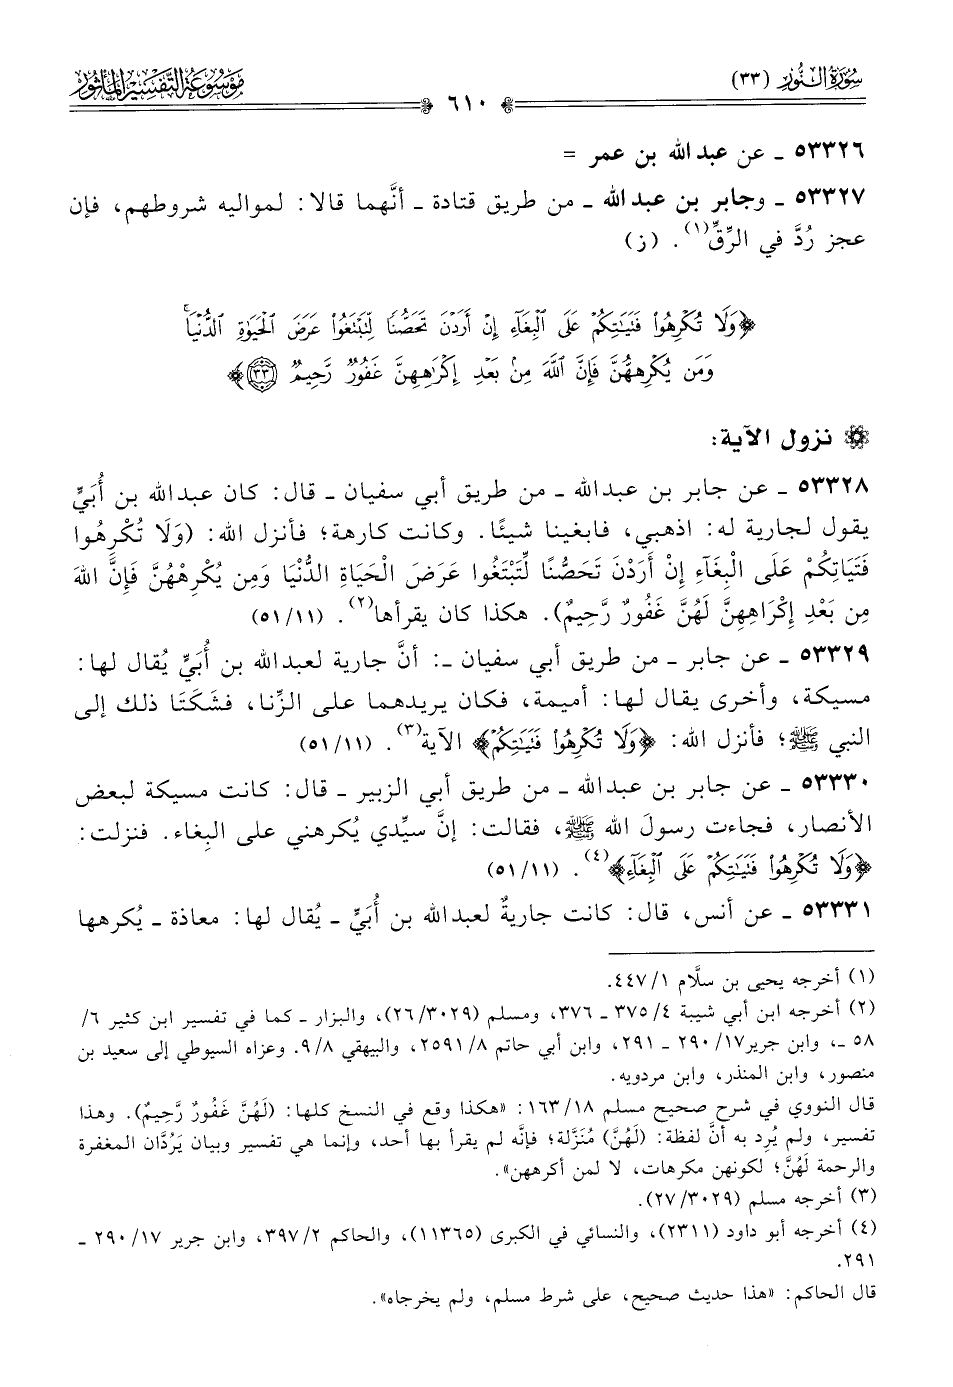 سُورَةُ النُّورِ (٣٣)
٦١٠
مَوْسُوعَةُ التَّفْسِيرِ المَأْثُور
٥٣٣٢٦ ـ عن عبد الله بن عمر =
٥٣٣٢٧ ـ وجابر بن عبد الله ـ من طريق قتادة ـ أنَّهما قالا: لمواليه شروطهم، فإن
عجز رُدَّ في الرِّقِّ(١). (ز)
﴿وَلَا تُكْرِهُوا۟ فَتَيَـٰتِكُمْ عَلَى ٱلْبِغَآءِ إِنْ أَرَدْنَ تَحَصُّنًا لِّتَبْتَغُوا۟ عَرَضَ ٱلْحَيَوٰةِ ٱلدُّنْيَا ۚ
وَمَن يُكْرِههُّنَّ فَإِنَّ ٱللَّهَ مِنۢ بَعْدِ إِكْرَٰهِهِنَّ غَفُورٌ رَّحِيمٌ ٣٣﴾
نزول الآية:
٥٣٣٢٨ ـ عن جابر بن عبدالله ـ من طريق أبي سفيان ـ قال: كان عبدالله بن أُبَيٍّ
يقول لجارية له: اذهبي، فابغينا شيئًا. وكانت كارهة؛ فأنزل الله: (وَلَا تُكْرِهُوا
فَتَيَاتِكُمْ عَلَى الْبِغَآءِ إِنْ أَرَدْنَ تَحَصُّنًا لِّتَبْتَغُوا عَرَضَ الْحَيَاةِ الدُّنْيَا وَمِن يُكْرِهْهُنَّ فَإِنَّ اللهَ
مِن بَعْدِ إِكْرَاهِهِنَّ لَهُنَّ غَفُورٌ رَّحِيمٌ). هكذا كان يقرأها(٢). (١١/ ٥١)
٥٣٣٢٩ ـ عن جابر ـ من طريق أبي سفيان ـ: أنَّ جارية لعبدالله بن أُبَيٍّ يُقال لها:
مسيكة، وأخرى يقال لها: أميمة، فكان يريدهما على الزِّنا، فشَكَتَا ذلك إلى
النبي ﷺ؛ فأنزل الله: ﴿وَلَا تُكْرِهُوا۟ فَتَيَـٰتِكُمْ﴾ الآية(٣). (١١/ ٥١)
٥٣٣٣٠ ـ عن جابر بن عبدالله ـ من طريق أبي الزبير ـ قال: كانت مسيكة لبعض
الأنصار، فجاءت رسولَ الله ﷺ، فقالت: إنَّ سيِّدي يُكرهني على البِغاء. فنزلت:
﴿وَلَا تُكْرِهُوا۟ فَتَيَـٰتِكُمْ عَلَى ٱلْبِغَآءِ﴾(٤). (١١/ ٥١)
٥٣٣٣١ ـ عن أنس، قال: كانت جاريةٌ لعبدالله بن أُبَيٍّ ـ يُقال لها: معاذة ـ يُكرهها
(١) أخرجه يحيى بن سلَّام ١/ ٤٤٧.
(٢) أخرجه ابن أبي شيبة ٤/ ٣٧٥ ـ ٣٧٦، ومسلم (٣٠٢٩/ ٢٦)، والبزار ـ كما في تفسير ابن كثير ٦/
٥٨ ـ، وابن جرير ١٧/ ٢٩٠ ـ ٢٩١، وابن أبي حاتم ٨/ ٢٥٩١، والبيهقي ٨/ ٩. وعزاه السيوطي إلى سعيد بن
منصور، وابن المنذر، وابن مردويه.
قال النووي في شرح صحيح مسلم ١٨/ ١٦٣: «هكذا وقع في النسخ كلها: (لَهُنَّ غَفُورٌ رَّحِيمٌ). وهذا
تفسير، ولم يُرِد به أنَّ لفظة: (لَهُنَّ) مُنَزَّلة؛ فإنَّه لم يقرأ بها أحد، وإنما هي تفسير وبيان يَرُدَّان المغفرة
والرحمة لَهُنَّ؛ لكونهن مكرهات، لا لمن أكرههن».
(٣) أخرجه مسلم (٣٠٢٩/ ٢٧).
(٤) أخرجه أبو داود (٢٣١١)، والنسائي في الكبرى (١١٣٦٥)، والحاكم ٢/ ٣٩٧، وابن جرير ١٧/ ٢٩٠ ـ
٢٩١.
قال الحاكم: «هذا حديث صحيح، على شرط مسلم، ولم يخرجاه».